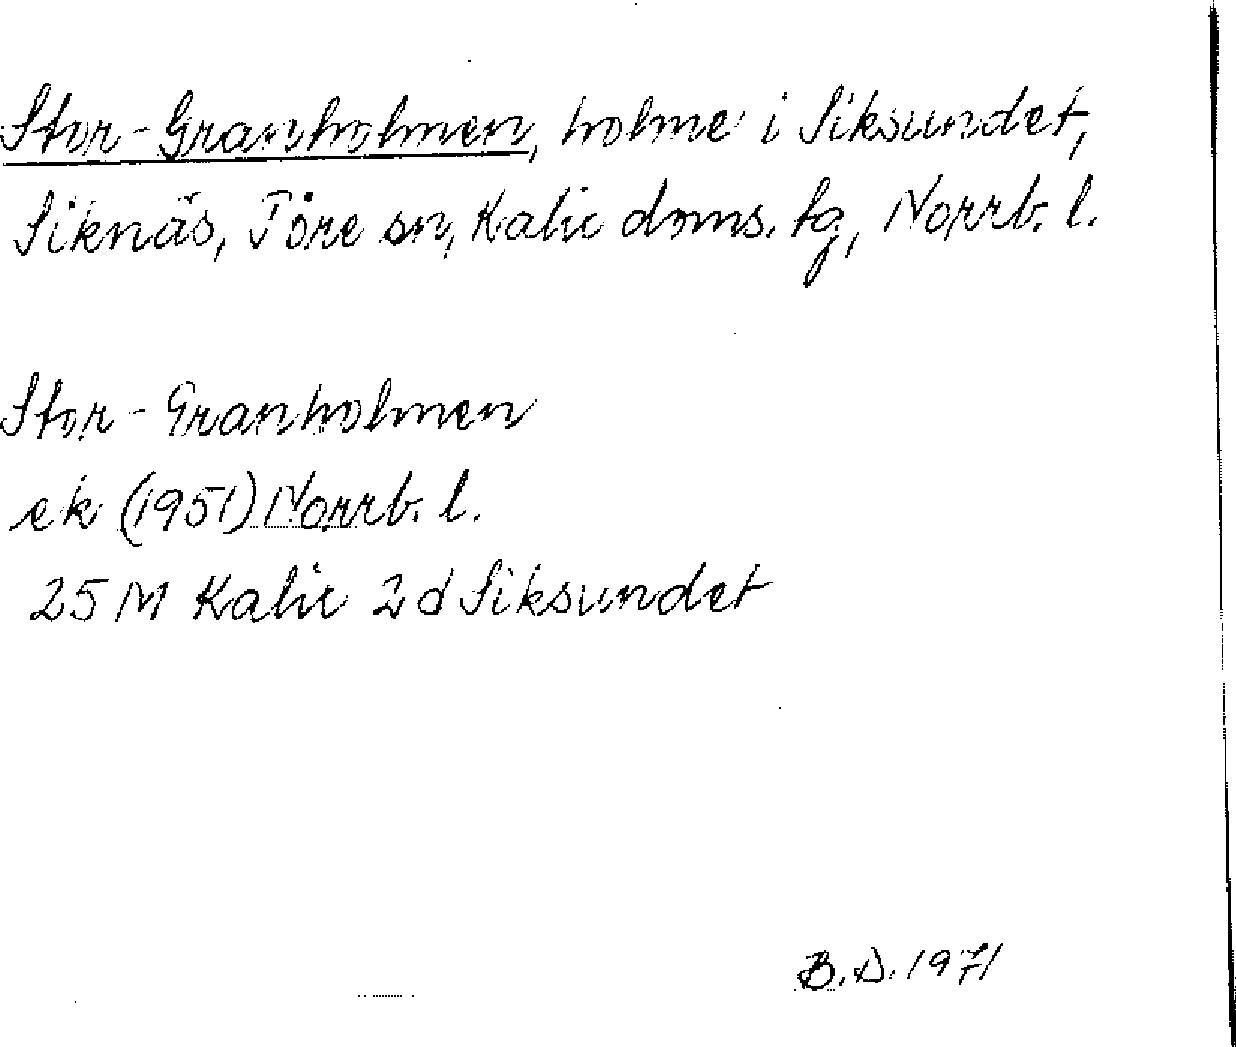 Stor-Granholmen, holme i Siksundet,
Siknäs, Töre sn, Kalix doms. tg, Norrb. l.
Stor-Granholmen
ek (1951) Norrb. l.
25 M Kalix 2 d Siksundet
B.D. 1971